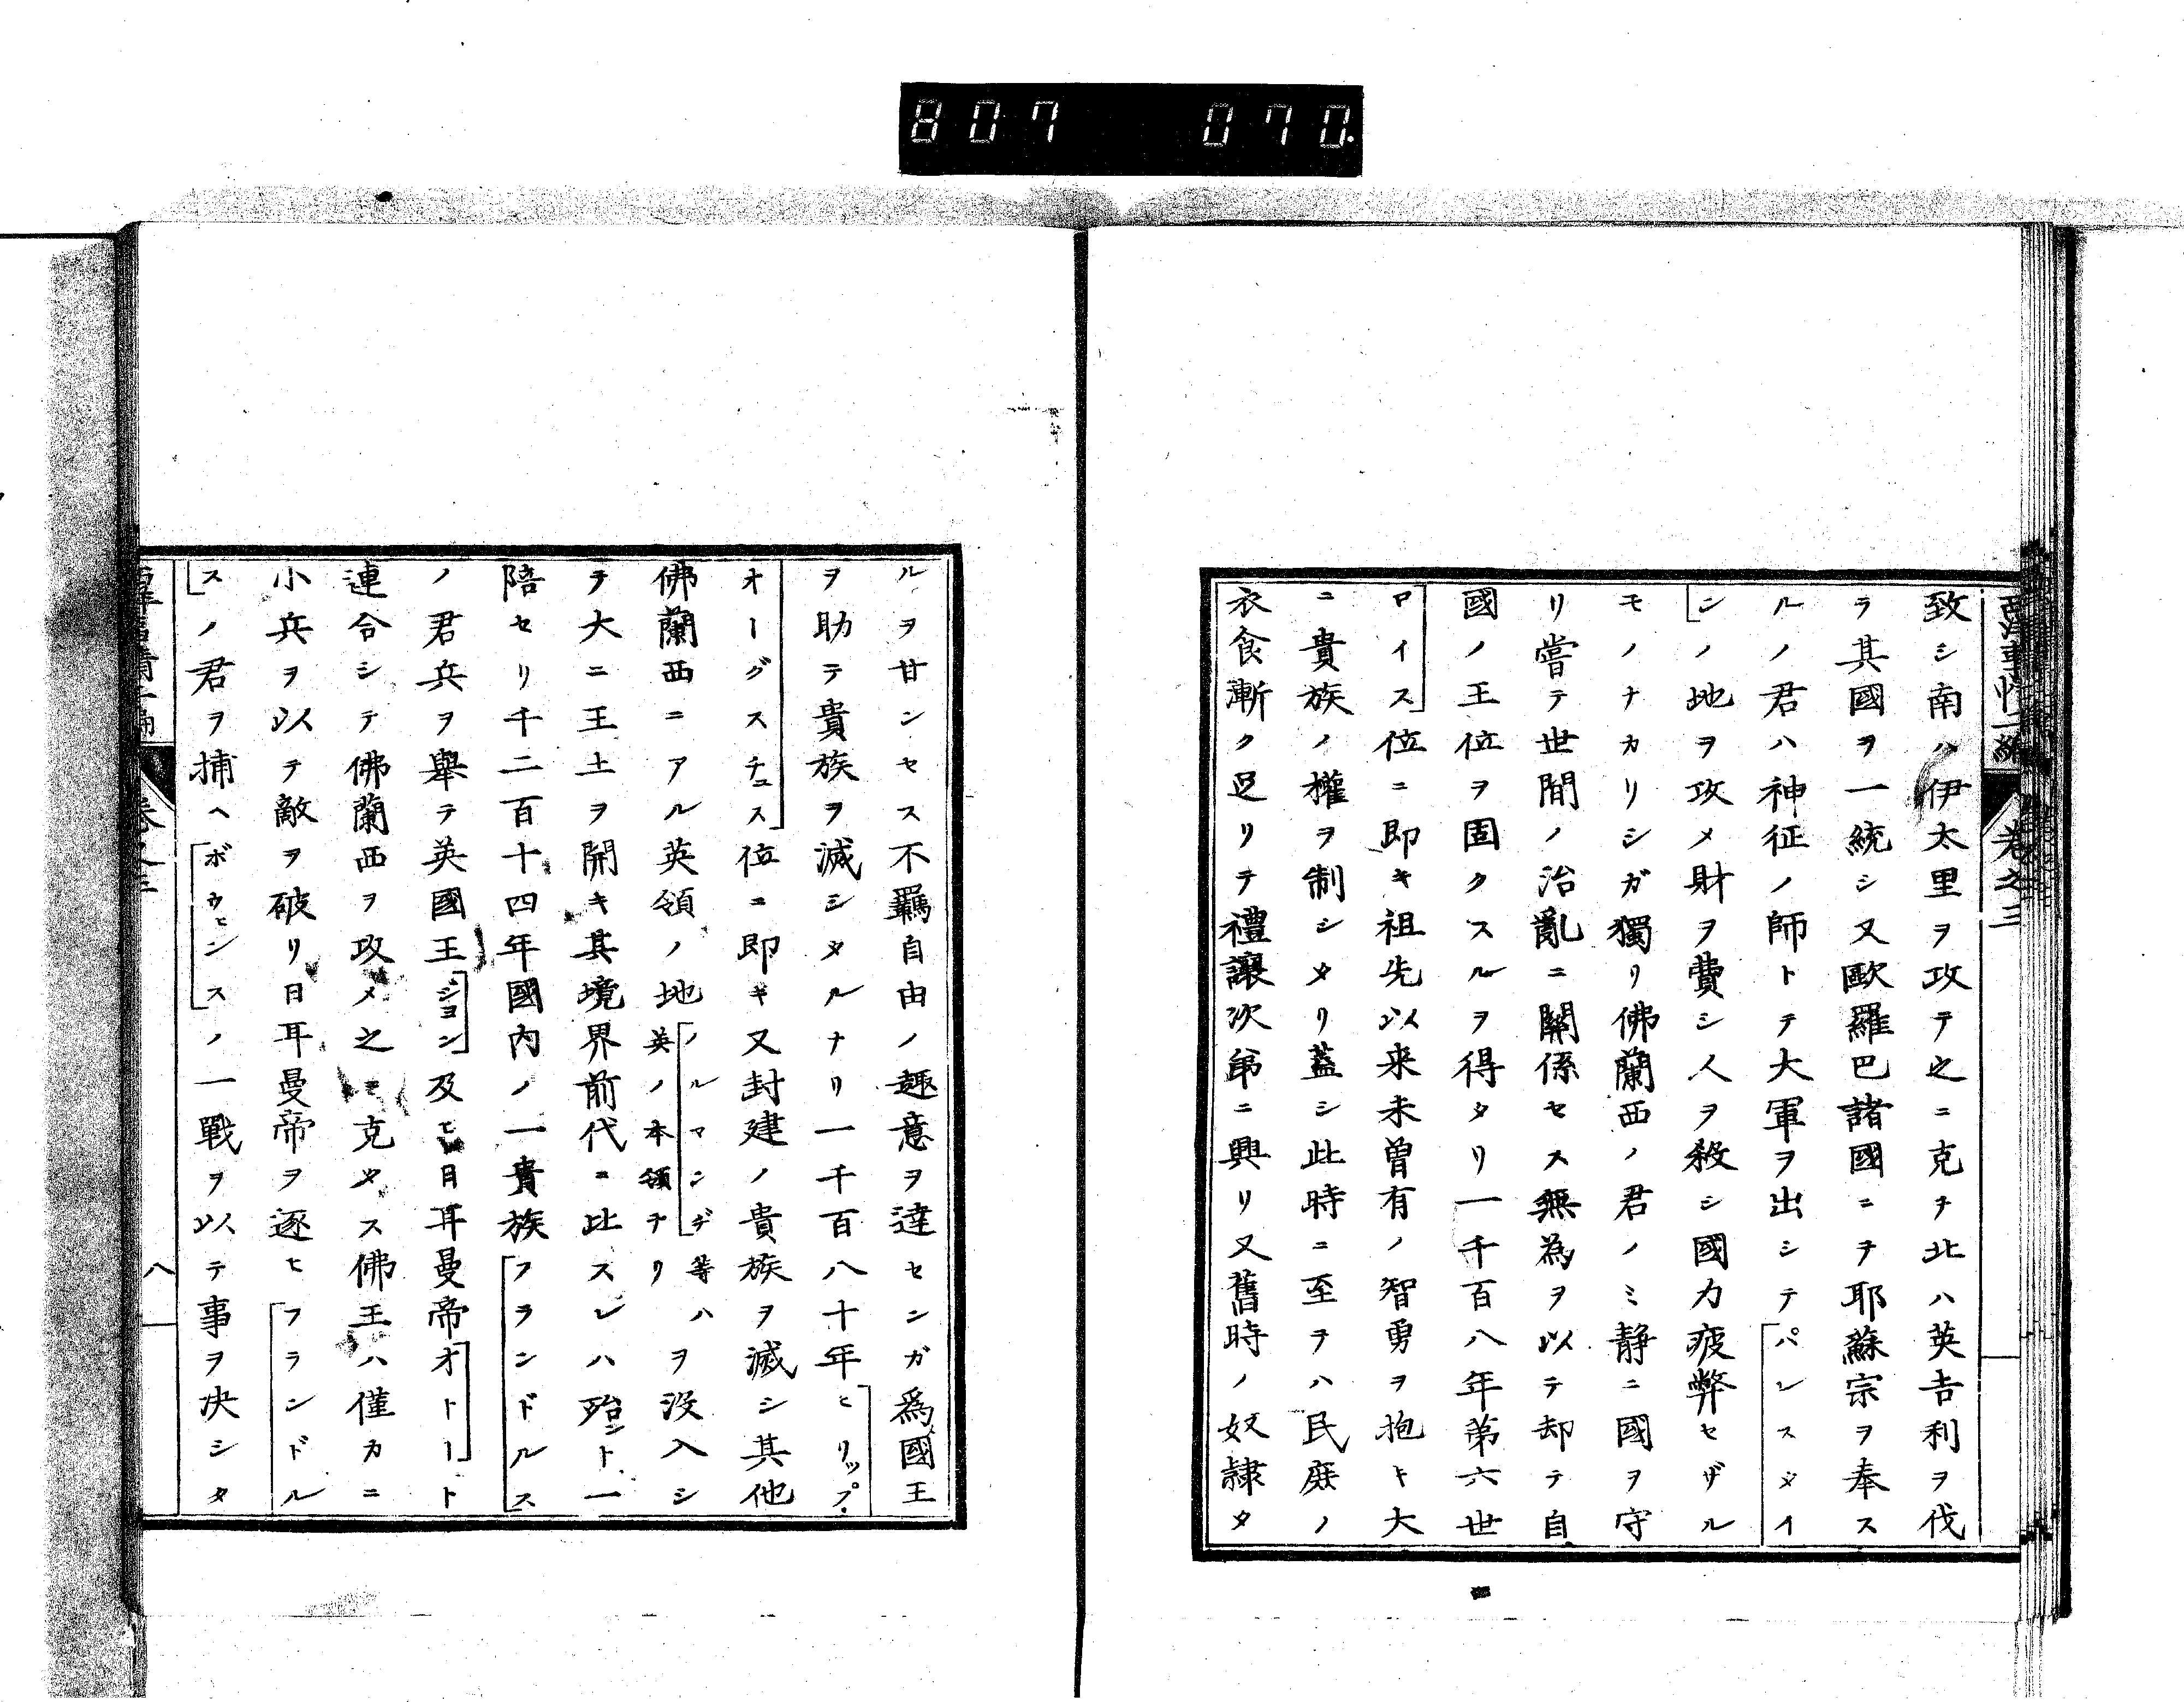 807 070
西洋事情二編 卷之三
致シ南ハ伊太里ヲ攻テ之ニ克チ北ハ英吉利ヲ伐
ラ其國ヲ一統シ又歐羅巴諸國ニテ耶蘇宗ヲ奉ス
ルノ君ハ神征ノ師トテ大軍ヲ出シテパレスタイ
ンノ地ヲ攻メ財ヲ費シ人ヲ殺シ國力疲弊セザル
モノナカリシガ獨リ佛蘭西ノ君ノミ靜ニ國ヲ守
リ嘗テ世間ノ治亂ニ關係セス無為ヲ以テ却テ自
國ノ王位ヲ固クスルヲ得タリ一千百八年第六世
ロイス位ニ即キ祖先以来未曽有ノ智勇ヲ抱キ大
ニ貴族ノ權ヲ制シタリ蓋シ此時ニ至テハ民庶ノ
衣食漸ク足リテ禮讓次第ニ興リ又舊時ノ奴隷タ
ルヲ甘ンセス不羈自由ノ趣意ヲ達センガ爲國王
ヲ助テ貴族ヲ滅シタルナリ一千百八十年ヒリップ
オーグスチュス位ニ即キ又封建ノ貴族ヲ滅シ其他
佛蘭西ニアル英領ノ地ノルマンヂ等ハ英ノ本領ナリヲ没入シ
テ大ニ王土ヲ開キ其境界前代ニ比スレハ殆ント一
陪セリ千二百十四年國内ノ一貴族フランドルス
ノ君兵ヲ舉テ英國王ジョン及ヒ日耳曼帝オトート
連合シテ佛蘭西ヲ攻メ之ニ克タス佛王ハ僅カニ
小兵ヲ以テ敵ヲ破リ日耳曼帝ヲ逐ヒフランドル
スノ君ヲ捕ヘボウヒンスノ一戰ヲ以テ事ヲ决シタ
西洋事情二編 卷之三 八